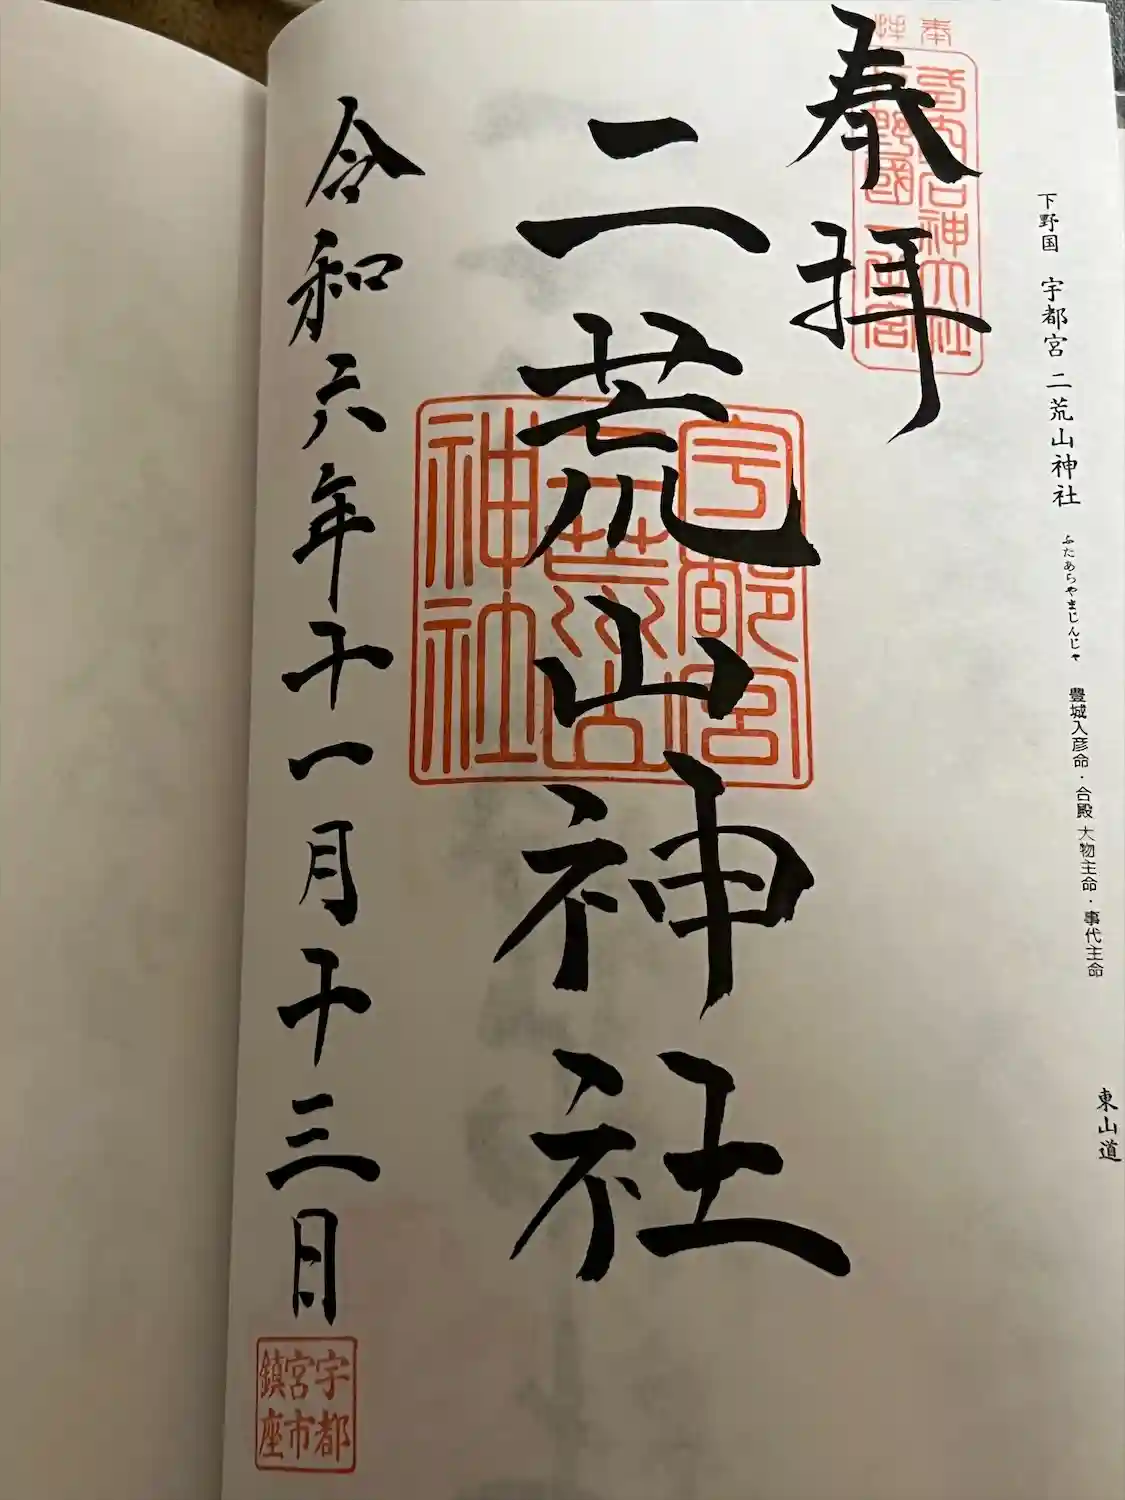 下野国 宇都宮 二荒山神社 ふたあらやまじんじゃ 豊城入彦命・合殿 大物主命・事代主命 東山道
奉拝
奉拝
内名神大社
野國一之宮
二荒山神社
宇都宮
二荒山
神社
令和六年十一月十三日
宇都
宮市
鎮座